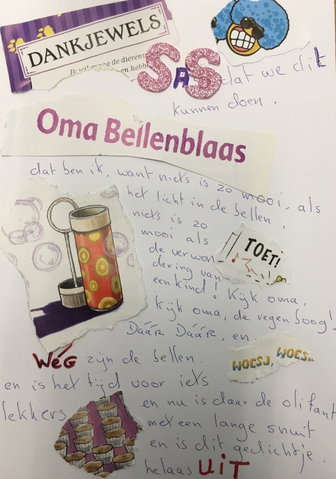 DANKJEWELS
SAS dat we dit
kunnen doen.
Oma Bellenblaas
dat ben ik, want niets is zo mooi, als
het licht in de bellen,
niets is zo
mooi als
de verwon
dering van
een kind! Kijk oma,
TOET!
kijk oma, de regenboog!
Dáár Dáár, en..
WÈG zijn de bellen
WOESJ, WOESJ
en is het tijd voor iets
lekkers
en nu is daar de olifant
met een lange snuit
en is dit gedichtje
helaas UIT